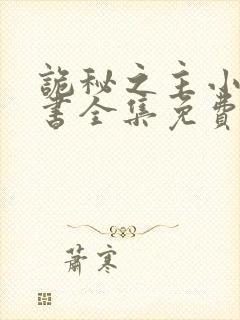 詭秘之主小
書全集免費
蕭寒